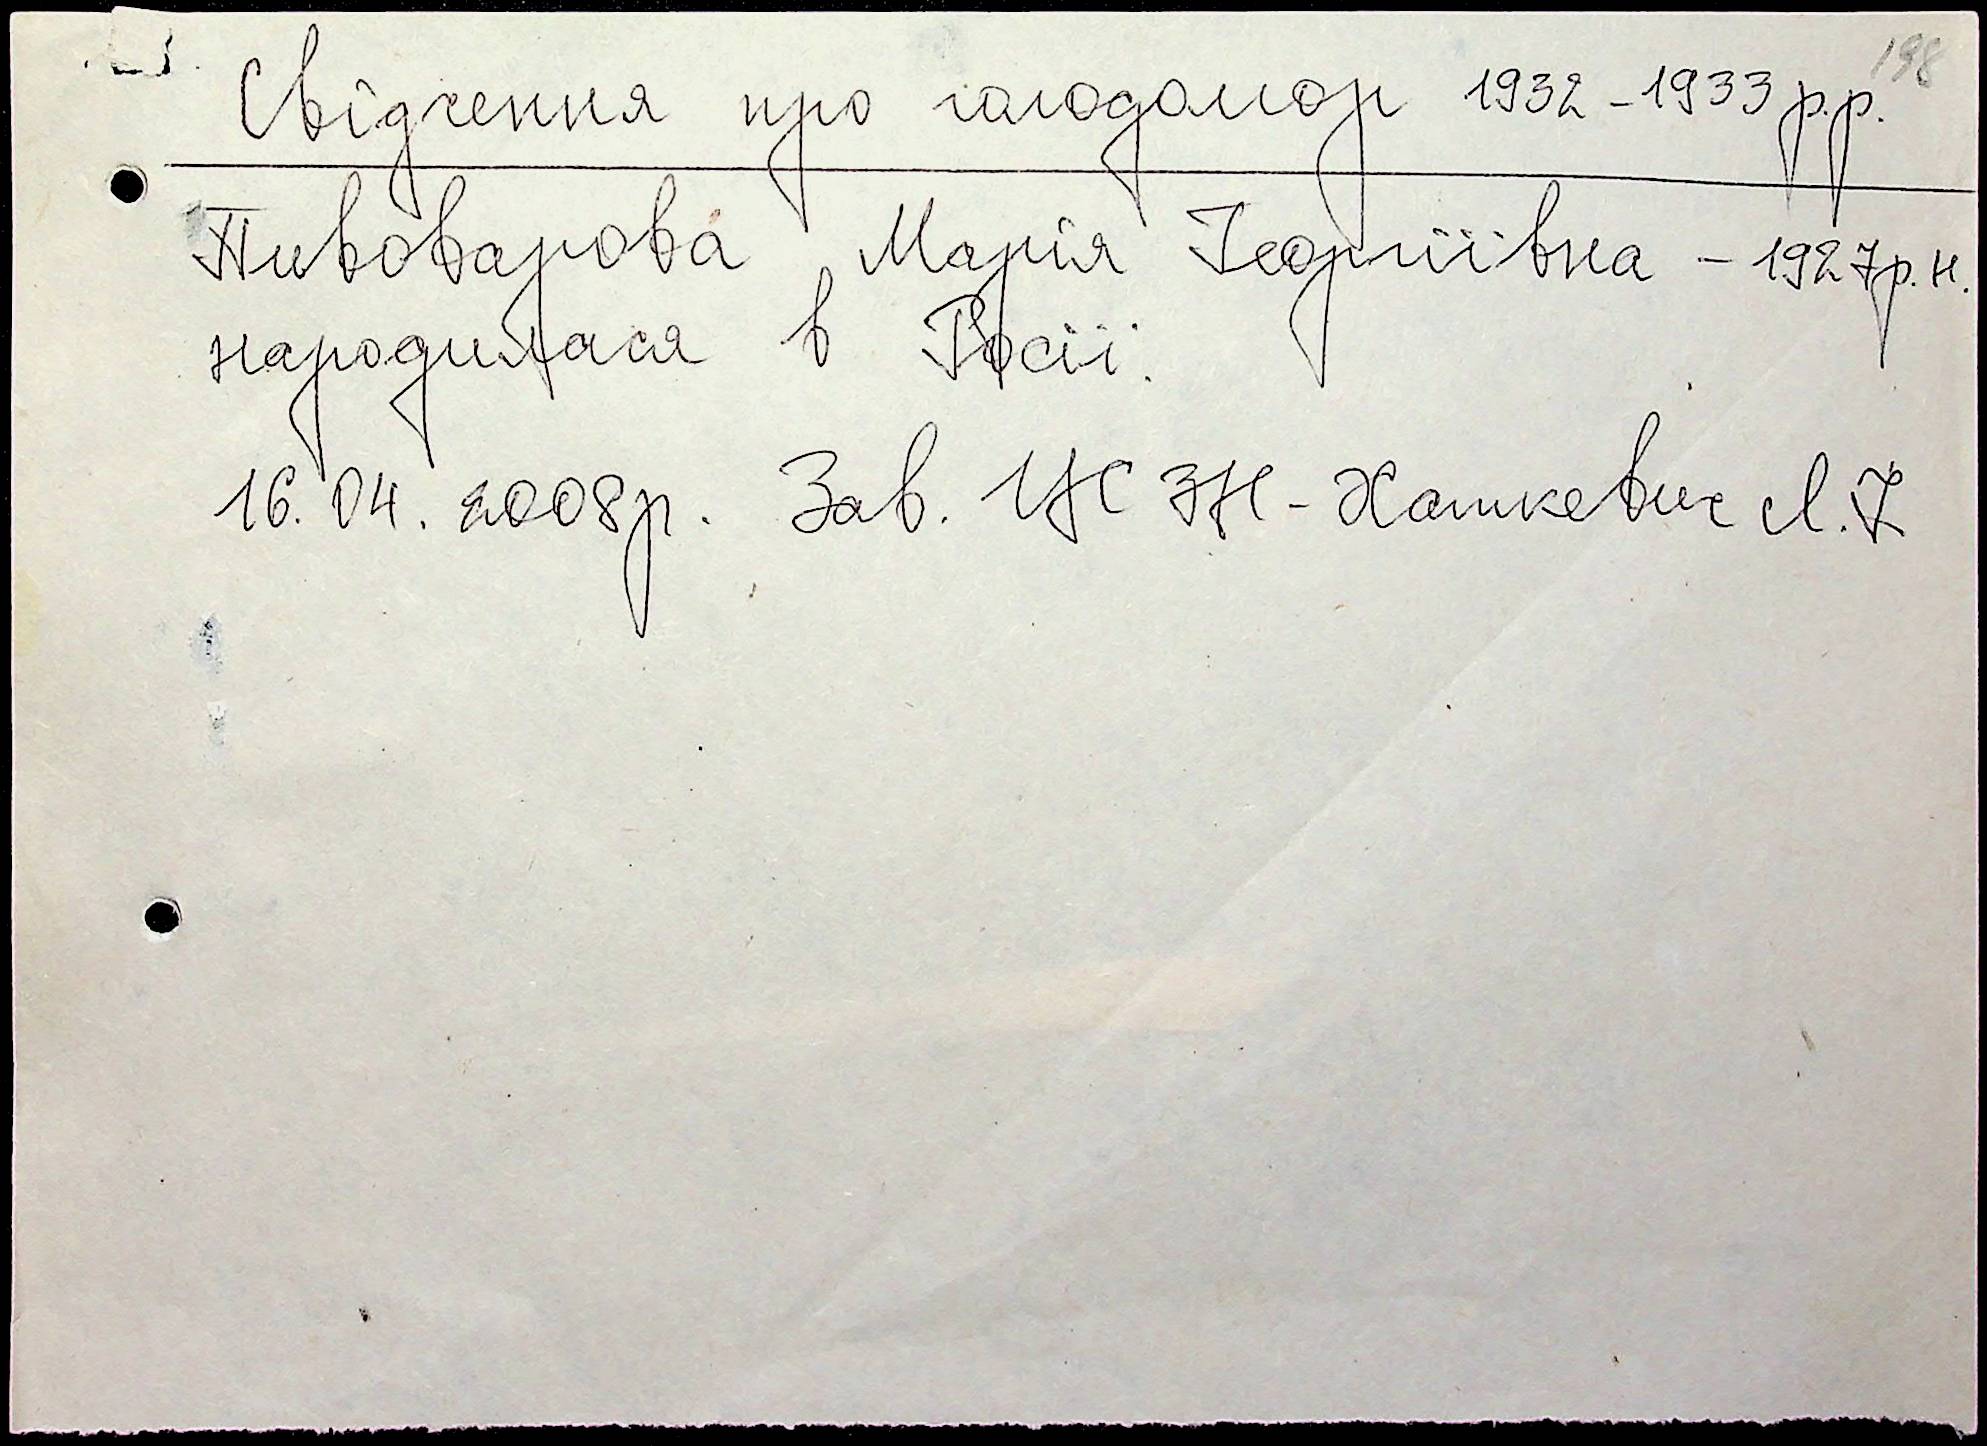 198
Свідчення про голодомор 1932-1933 р.р.
Пивоварова Марія Георгіївна - 1927 р.н.
народилася в Росії.
16.04.2008р. Зав. ЦСЗН - Хашкевич Л.